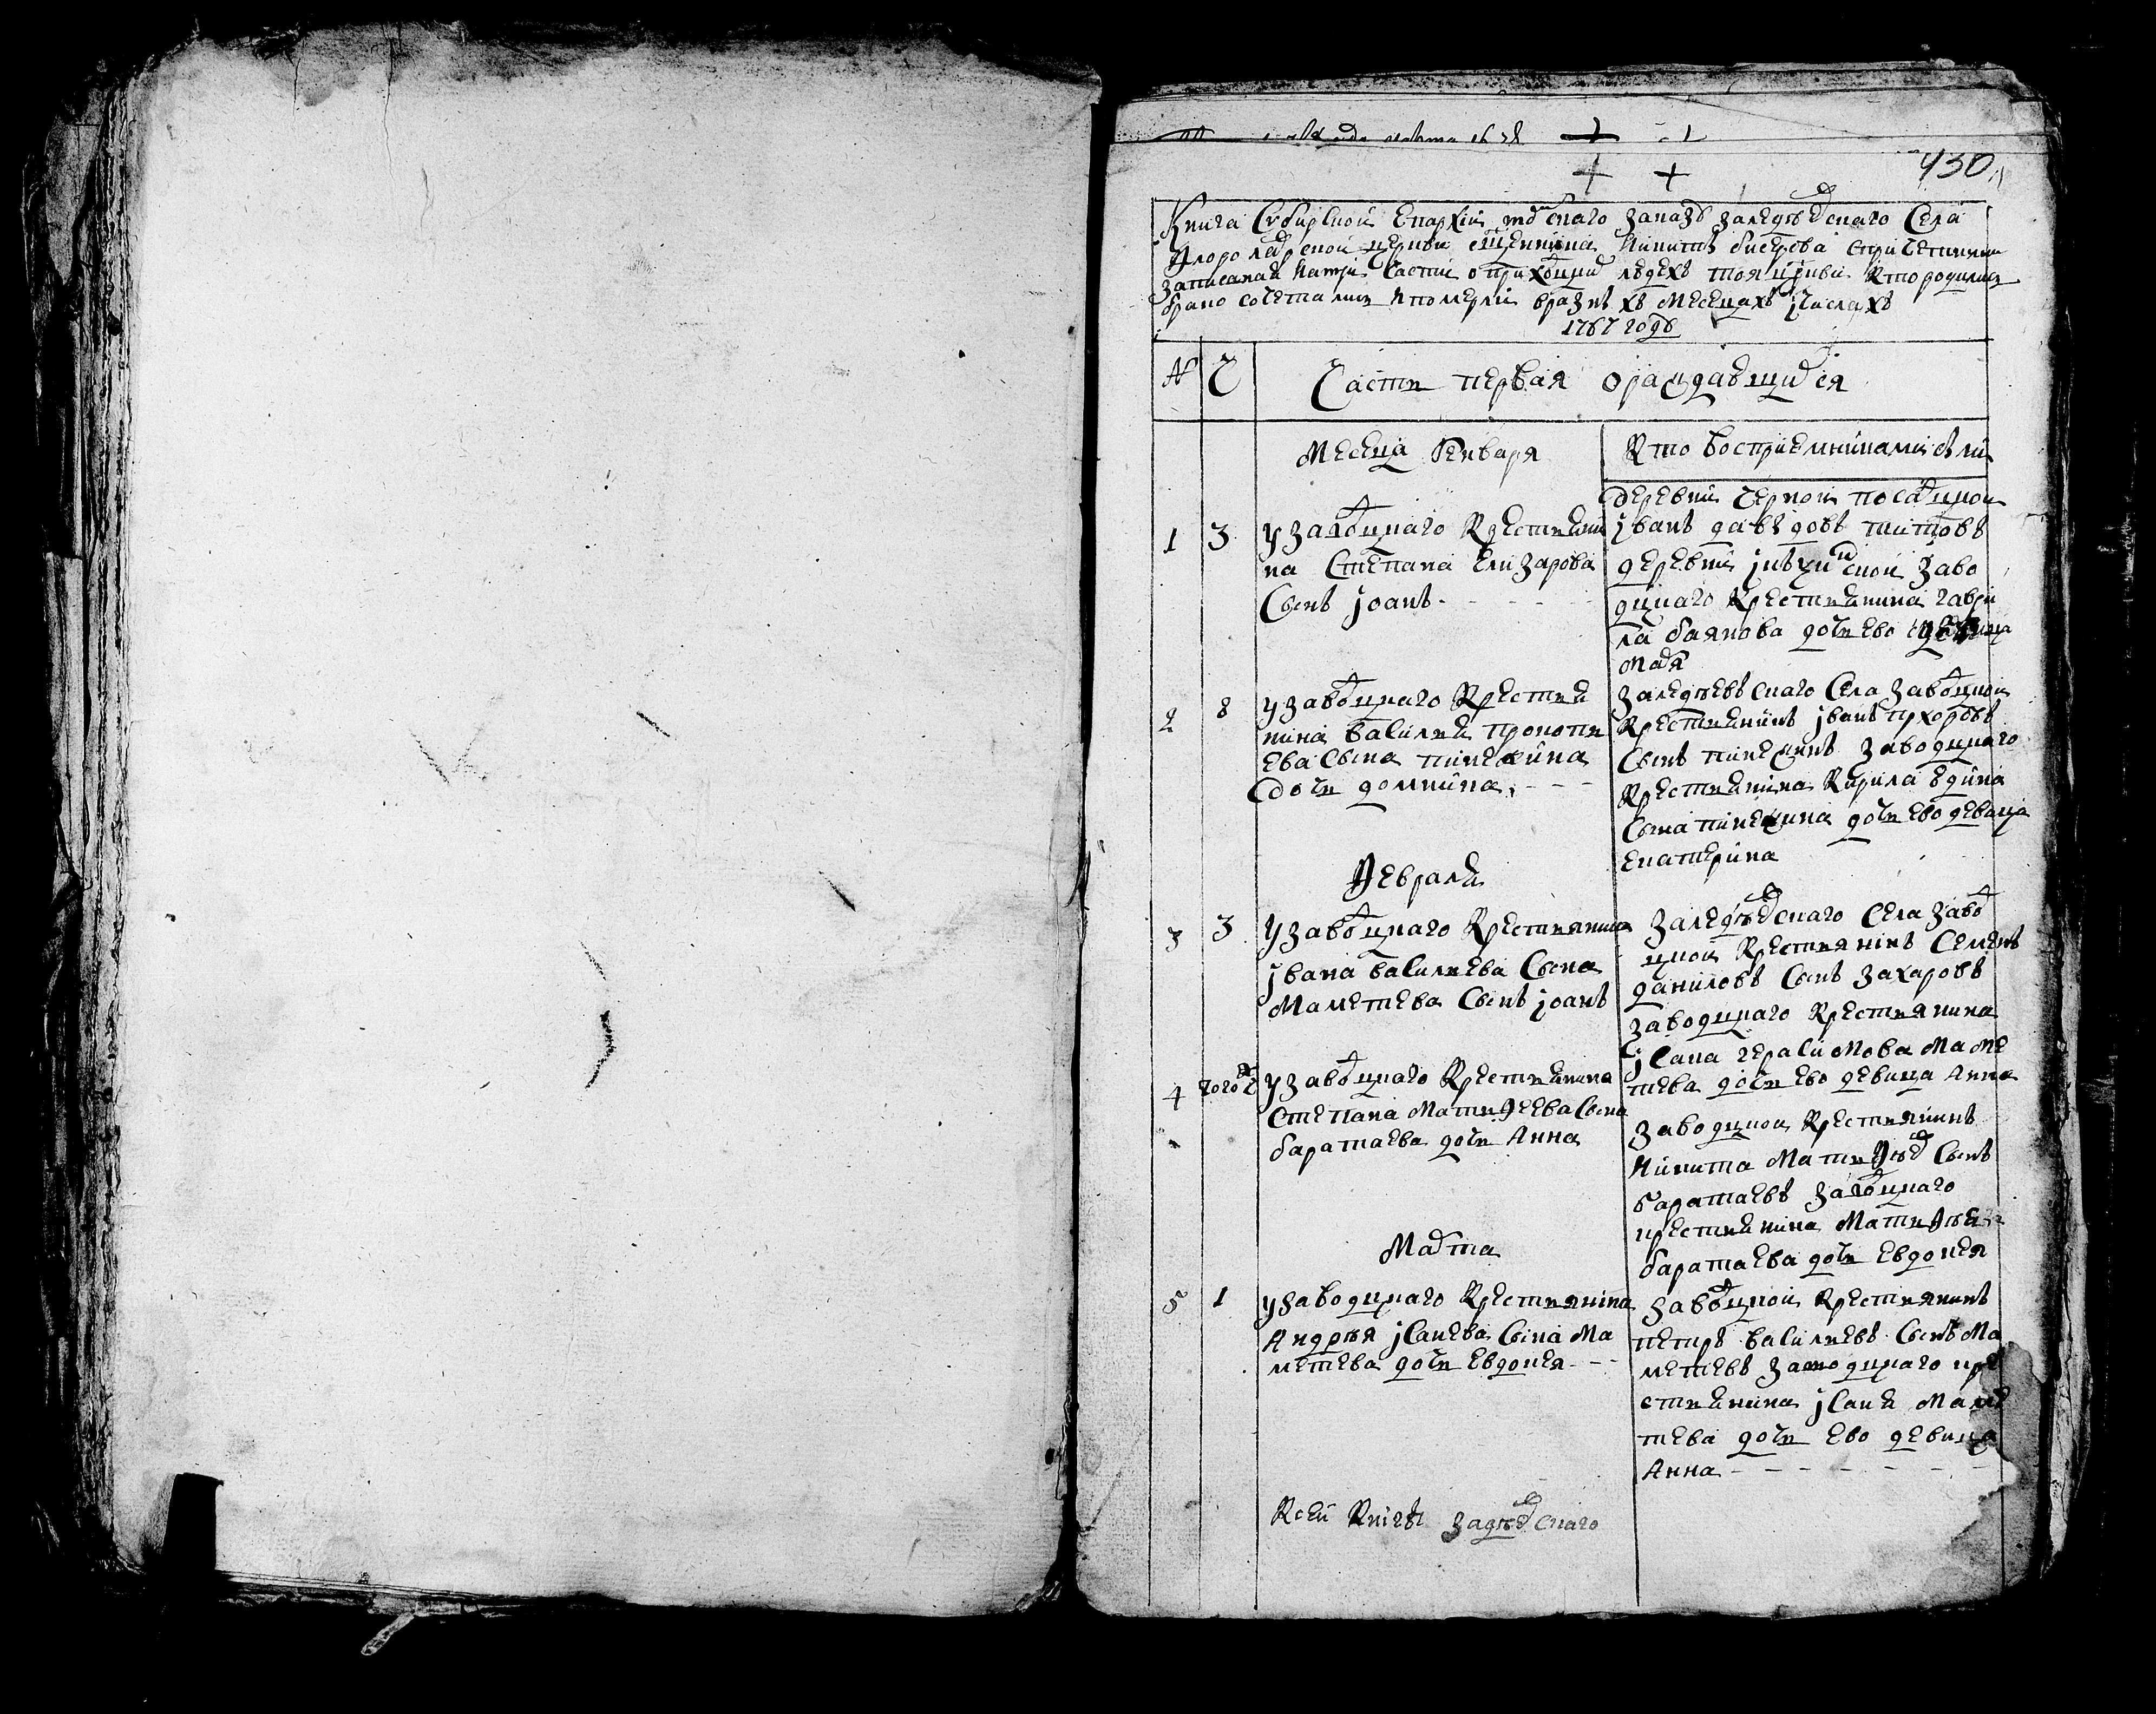 430
Книга Сибирской Епархии томскаго заказу заледеевскаго Села
Флоро лаврской церкви священника Никиты с причетники
записанная натри части о приходцкихъ людехъ тоя церкви Кто родились
бракосочетались и померли вразныхъ месецахъ и числахъ
1767 году
№ Ч Части первая о раждающихся
Месеца Генваря Кто восприемниками были
1 3 у заводцкаго Крестьяни
на Степана Елизарова
Сынъ Iоанъ
деревни Черной посацкой
Iванъ давыдовъ титовъ
деревни скои заво
дцкаго Крестьянина гаври
ла баянова дочь ево
Марья
2 8 у заводцкаго Крестья
нина василья прокопь
ева Сына пинежина
дочь домнина
заледеевъскаго Села заводцкой
Крестьянинъ Iванъ прхоровъ
Сынъ пинежинъ заводцкаго
Крестьянина Кирила
Сына пинежина дочь ево девица
Екатерина
Февраля
3 3 У заводцкаго Крестьянина
Iвана васильева Сына
Маметева Сынъ Iоанъ
Заледеевскаго Села завод
цкой Крестьянинъ Семенъ
даниловъ Сынъ Захаровъ
заводцкаго Крестьянина
Iсака герасимова Маме
тева дочь ево девица Анна
4 того ж ч У заводцкаго Крестьянина
Степана Матьфеева Сына
баратаева дочь Анна
Заводцкой Крестьянинъ
Никита Матьфеевъ Сынъ
баратаевъ заводцкаго
крестьянина Матьфея
баратаева дочь Евдокея
Марта
5 1 у заводцкаго Крестьянина
Андрея Iсакева Сына Ма
метева дочь Евдокея
Заводцкой Крестьянинъ
петръ васильевъ Сынъ Ма
метевъ заводцкаго кре
стьянина Iсака Маме
тева дочь Ево девица
Анна
Ксей Книге задеевскаго